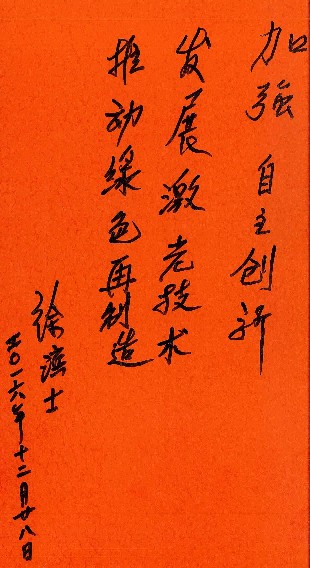 加强 自主创新
发展激光技术
推动绿色再制造
徐滨士
二〇一六年十二月廿八日